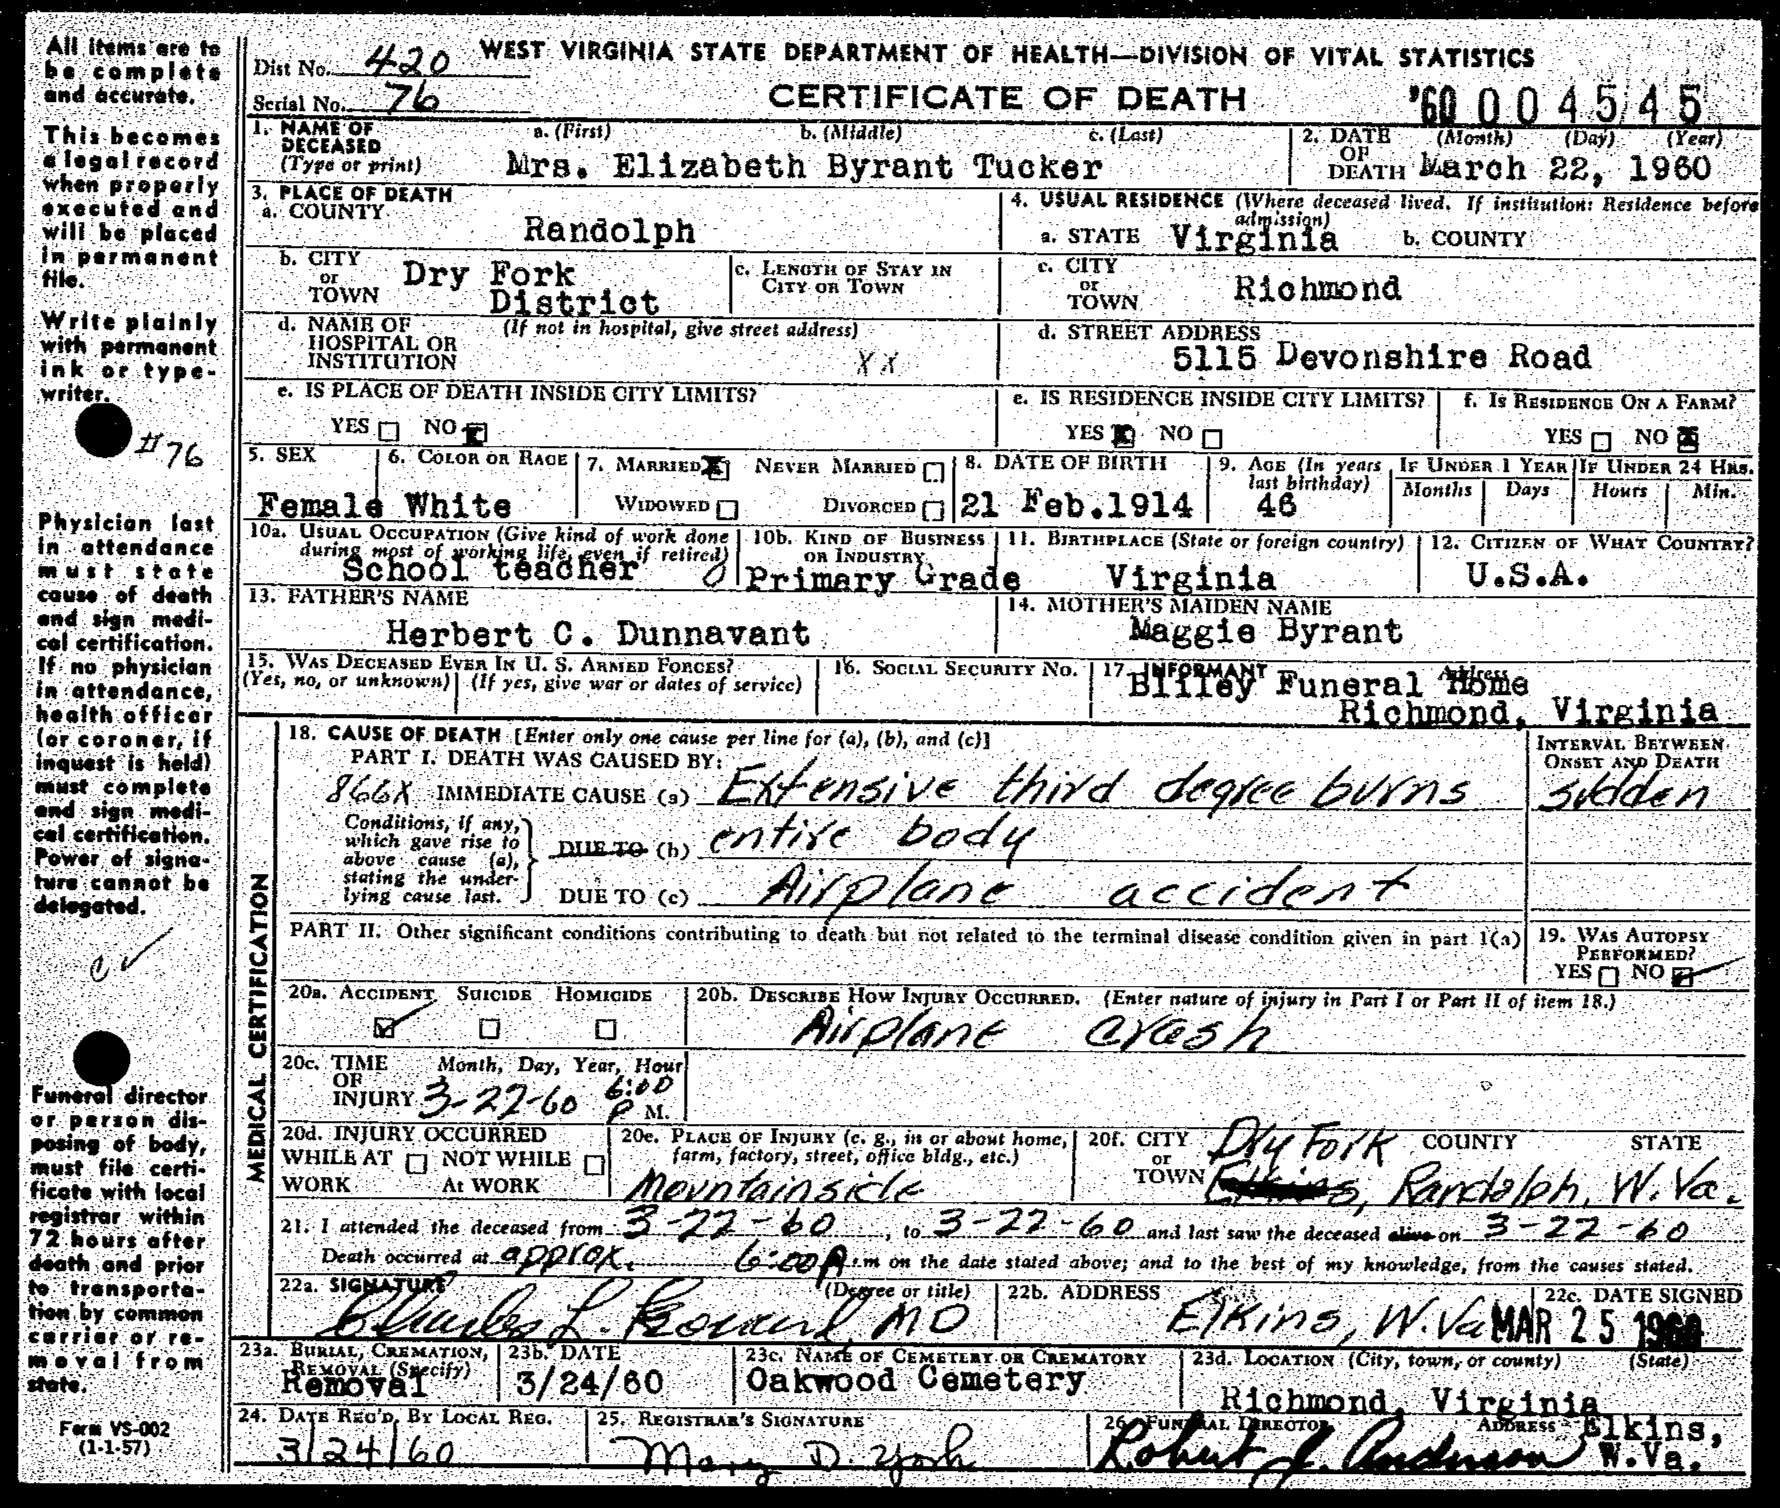 All items are to
be complete
and accurate.
This becomes
a legal record
when properly
executed and
will be placed
in permanent
file.
Write plainly
with permanent
ink or type-
writer.
#76
Physician last
in attendance
must state
cause of death
and sign medi-
cal certification.
If no physician
in attendance,
health officer
(or coroner, if
inquest is held)
must complete
and sign medi-
cal certification.
Power of signa-
ture cannot be
delegated.
Funeral director
or person dis-
posing of body,
must file certi-
ficate with local
registrar within
72 hours after
death and prior
to transporta-
tion by common
carrier or re-
moval from
state.
Form VS-002
(1-1-57)
Dist No. 420
WEST VIRGINIA STATE DEPARTMENT OF HEALTH—DIVISION OF VITAL STATISTICS
Serial No. 76
CERTIFICATE OF DEATH
'60 004545
1. NAME OF DECEASED (Type or print) a. (First) b. (Middle) c. (Last)
Mrs. Elizabeth Byrant Tucker
2. DATE OF DEATH (Month) (Day) (Year)
March 22, 1960
3. PLACE OF DEATH
a. COUNTY
Randolph
4. USUAL RESIDENCE (Where deceased lived. If institution: Residence before admission)
a. STATE Virginia b. COUNTY
b. CITY or TOWN Dry Fork District
c. LENGTH OF STAY IN CITY OR TOWN
c. CITY or TOWN Richmond
d. NAME OF HOSPITAL OR INSTITUTION (If not in hospital, give street address)
XX
d. STREET ADDRESS
5115 Devonshire Road
e. IS PLACE OF DEATH INSIDE CITY LIMITS?
YES NO
e. IS RESIDENCE INSIDE CITY LIMITS?
YES NO
f. IS RESIDENCE ON A FARM?
YES NO
5. SEX
Female
6. COLOR OR RACE
White
7. MARRIED NEVER MARRIED
WIDOWED DIVORCED
8. DATE OF BIRTH
21 Feb.1914
9. AGE (In years last birthday)
46
IF UNDER 1 YEAR
Months Days
IF UNDER 24 HRS.
Hours Min.
10a. USUAL OCCUPATION (Give kind of work done during most of working life, even if retired)
School teacher
10b. KIND OF BUSINESS OR INDUSTRY
Primary Grade
11. BIRTHPLACE (State or foreign country)
Virginia
12. CITIZEN OF WHAT COUNTRY?
U.S.A.
13. FATHER'S NAME
Herbert C. Dunnavant
14. MOTHER'S MAIDEN NAME
Maggie Byrant
15. WAS DECEASED EVER IN U. S. ARMED FORCES?
(Yes, no, or unknown) (If yes, give war or dates of service)
16. SOCIAL SECURITY NO.
17. INFORMANT Address
Bliley Funeral Home
Richmond, Virginia
MEDICAL CERTIFICATION
18. CAUSE OF DEATH [Enter only one cause per line for (a), (b), and (c)]
PART I. DEATH WAS CAUSED BY:
INTERVAL BETWEEN ONSET AND DEATH
866X IMMEDIATE CAUSE (a) Extensive third degree burns sudden
Conditions, if any, which gave rise to above cause (a), stating the underlying cause last.
DUE TO (b) entire body
DUE TO (c) Airplane accident
PART II. Other significant conditions contributing to death but not related to the terminal disease condition given in part I(a)
19. WAS AUTOPSY PERFORMED?
YES NO
20a. ACCIDENT SUICIDE HOMICIDE
20b. DESCRIBE HOW INJURY OCCURRED. (Enter nature of injury in Part I or Part II of item 18.)
Airplane crash
20c. TIME OF INJURY Month, Day, Year, Hour
3-22-60 6:00 P M.
20d. INJURY OCCURRED
WHILE AT WORK NOT WHILE AT WORK
20e. PLACE OF INJURY (e. g., in or about home, farm, factory, street, office bldg., etc.)
Mountainside
20f. CITY or TOWN COUNTY STATE
Dry Fork
Elkins, Randolph, W.Va.
21. I attended the deceased from 3-22-60, to 3-22-60 and last saw the deceased alive on 3-22-60
Death occurred at approx. 6:00 P.m on the date stated above; and to the best of my knowledge, from the causes stated.
22a. SIGNATURE (Degree or title)
Charles L. MD
22b. ADDRESS
Elkins, W.Va
22c. DATE SIGNED
MAR 25 1960
23a. BURIAL, CREMATION, REMOVAL (Specify)
Removal
23b. DATE
3/24/60
23c. NAME OF CEMETERY OR CREMATORY
Oakwood Cemetery
23d. LOCATION (City, town, or county) (State)
Richmond, Virginia
24. DATE REC'D. BY LOCAL REG.
3/24/60
25. REGISTRAR'S SIGNATURE
Mary D. York
26. FUNERAL DIRECTOR ADDRESS
Robert J. Anderson
Elkins, W.Va.